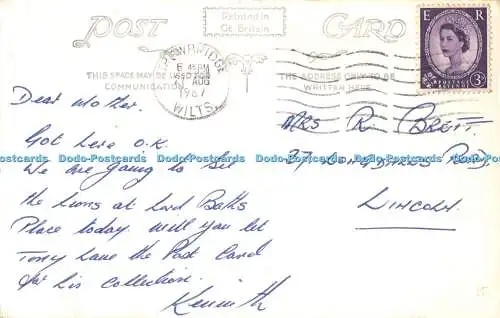 POST CARD
Printed in
Gt. Britain
E R
TROWBRIDGE
645PM
AUG
1967
WILTS.
THIS SPACE MAY BE USED FOR
COMMUNICATION
THE ADDRESS ONLY TO BE
WRITTEN HERE
POSTAGE REVENUE
3D
Dear Mother.
Got here O.K.
We are going to see
the Lions at Lord Baths
Place today will you let
Tony have the Post Card
for his collection.
Kenneth
MRS R BRETT.
37 ROAD.
LINCOLN.
Dodo-Postcards Dodo-Postcards Dodo-Postcards Dodo-Postcards Dodo-Postcards